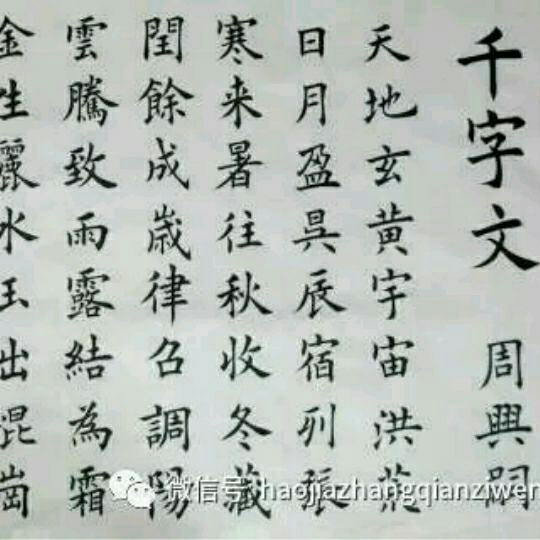 千字文 周興嗣
天地玄黄宇宙洪荒
日月盈昃辰宿列張
寒来暑往秋收冬藏
閏餘成歳律召調陽
雲騰致雨露結為霜
金生麗水玉出崑崗
微信号: haojiazhangqianziwen